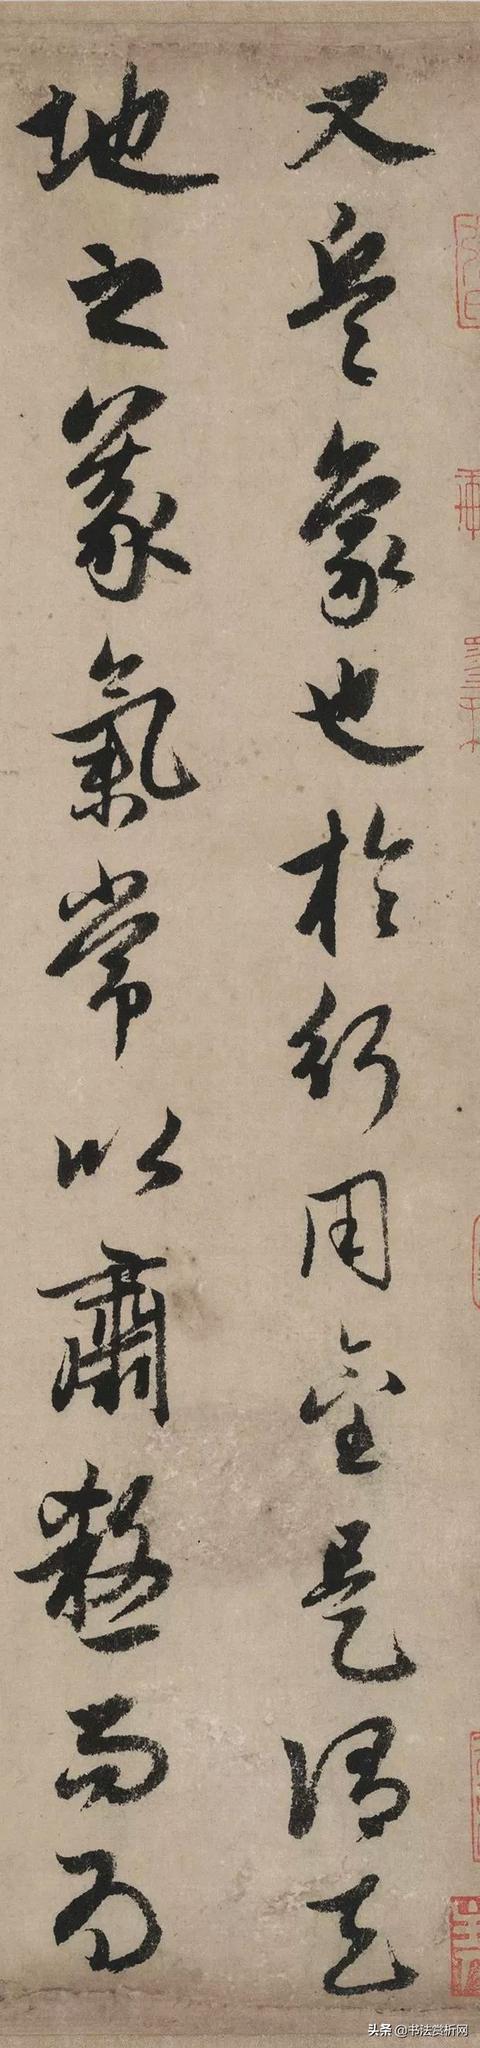 又兵象也於行用金是謂天
地之義氣常以肅煞而為
头条 @书法赏析网